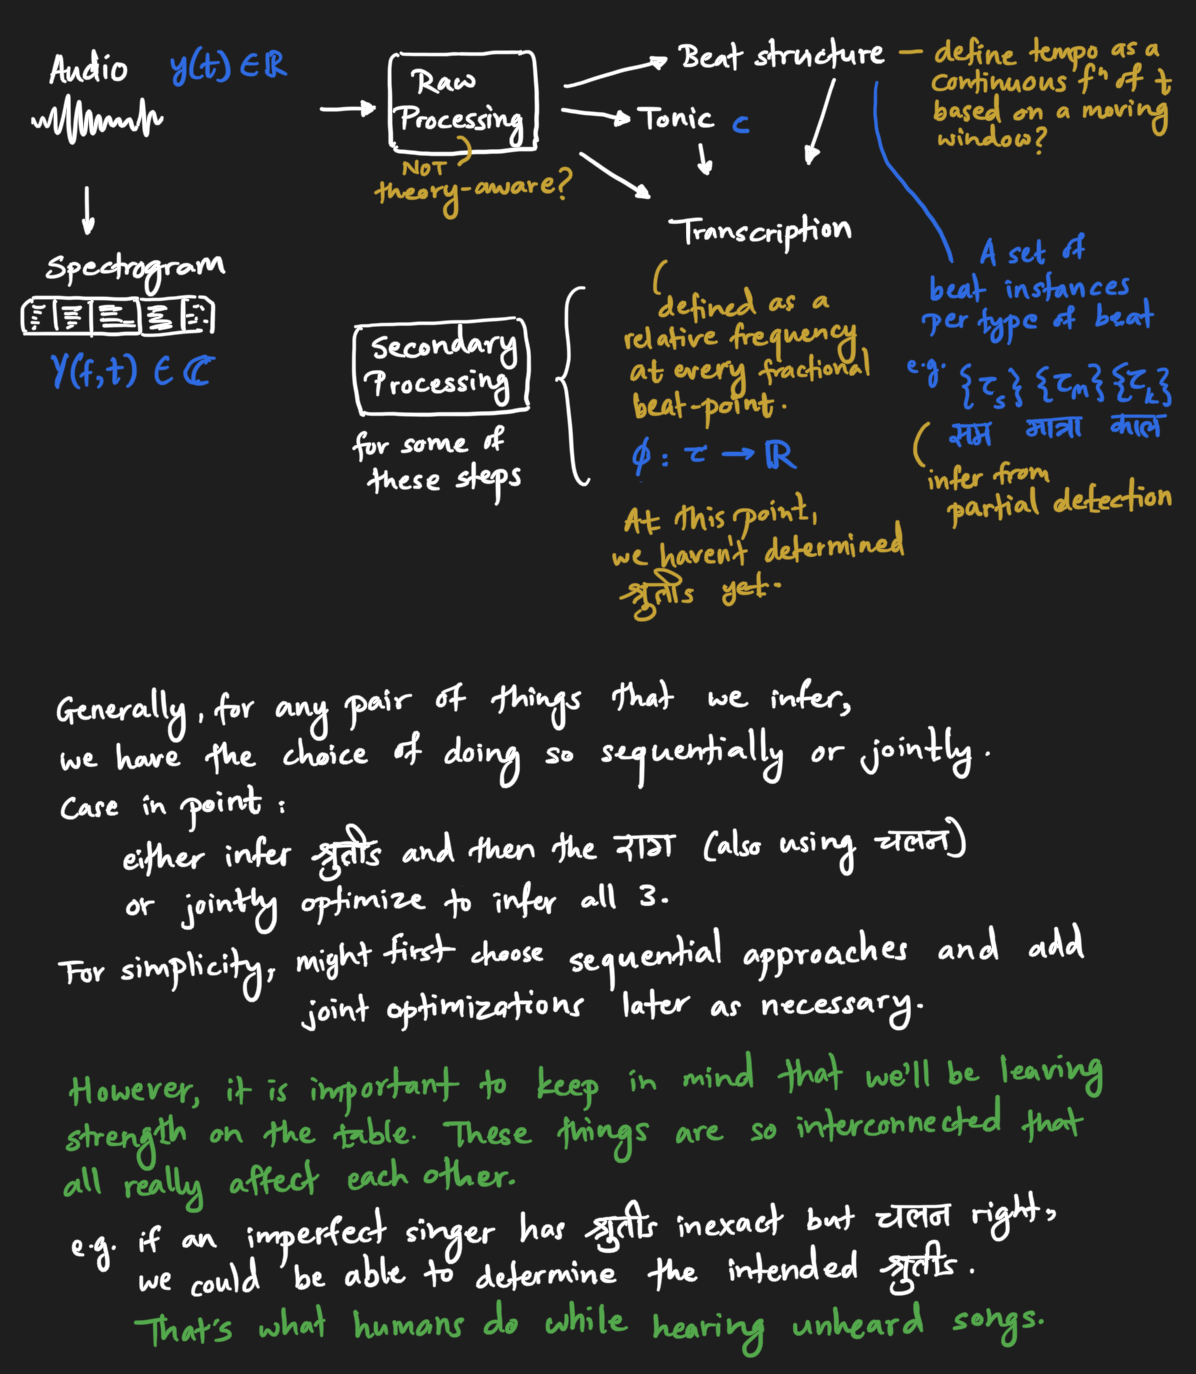 Audio y(t) ∈ ℝ
Spectrogram
Y(f,t) ∈ ℂ
Raw
Processing
NOT
theory-aware?
Beat structure
– define tempo as a
continuous fⁿ of t
based on a moving
window?
Tonic c
Transcription
defined as a
relative frequency
at every fractional
beat-point.
ϕ : τ → ℝ
At this point,
we haven't determined
श्रुतीs yet.
A set of
beat instances
per type of beat
e.g. {τₛ} {τₘ} {τₖ}
सम मात्रा काल
infer from
partial detection
Secondary
Processing
for some of
these steps
Generally, for any pair of things that we infer,
we have the choice of doing so sequentially or jointly.
Case in point :
either infer श्रुतीs and then the राग (also using चलन)
or jointly optimize to infer all 3.
For simplicity, might first choose sequential approaches and add
joint optimizations later as necessary.
However, it is important to keep in mind that we'll be leaving
strength on the table. These things are so interconnected that
all really affect each other.
e.g. if an imperfect singer has श्रुतीs inexact but चलन right,
we could be able to determine the intended श्रुतीs.
That's what humans do while hearing unheard songs.